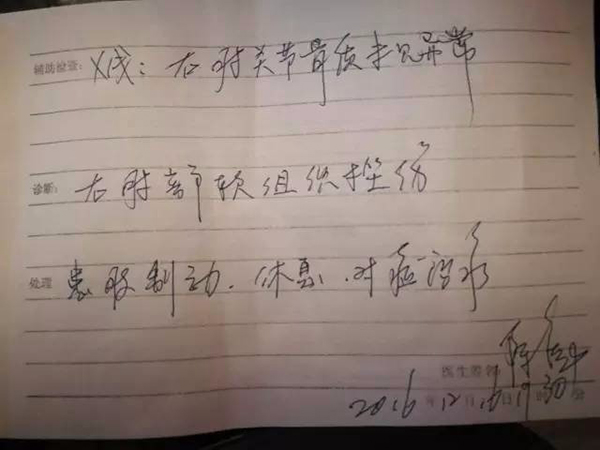 辅助检查: X线: 右肘关节骨质未见异常
诊断: 右肘部软组织挫伤
处理 患肢制动.休息.对症治疗
医生签名
2016年12月16日19时30分